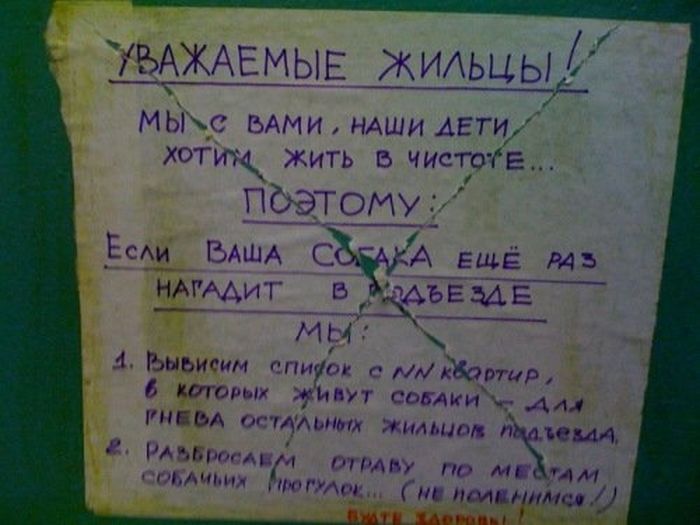 УВАЖАЕМЫЕ ЖИЛЬЦЫ!
МЫ С ВАМИ, НАШИ ДЕТИ
ХОТИМ ЖИТЬ В ЧИСТОТЕ...
ПОЭТОМУ:
ЕСЛИ ВАША СОБАКА ЕЩЁ РАЗ
НАГАДИТ В ПОДЪЕЗДЕ
МЫ:
1. ВЫВИСИМ СПИСОК С NN КВАРТИР,
В КОТОРЫХ ЖИВУТ СОБАКИ – ДЛЯ
ГНЕВА ОСТАЛЬНЫХ ЖИЛЬЦОВ ПОДЪЕЗДА.
2. РАЗБРОСАЕМ ОТРАВУ ПО МЕСТАМ
СОБАЧЬИХ ПРОГУЛОК... (НЕ ПОЛЕНИМСЯ!)
БУДТЕ ЗДОРОВЫ!